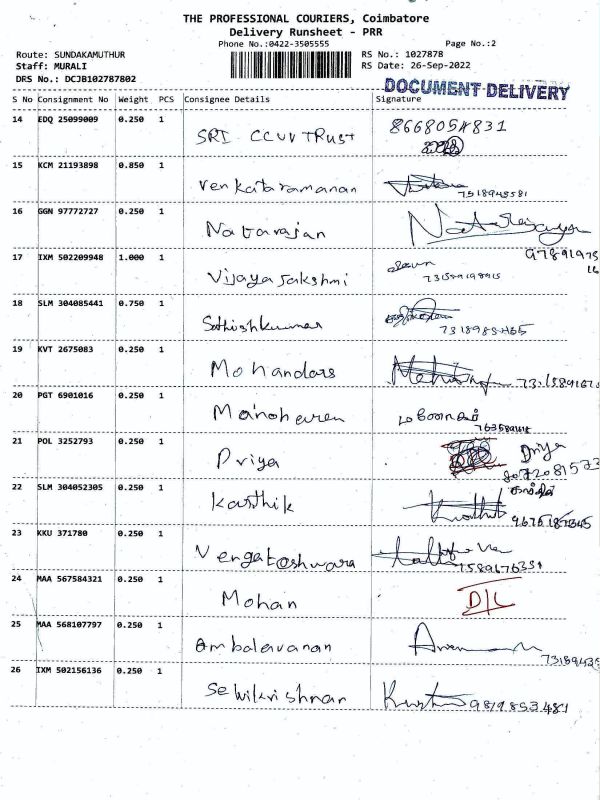 THE PROFESSIONAL COURIERS, Coimbatore
Delivery Runsheet - PRR
Phone No.:0422-3505555
Page No.:2
Route: SUNDAKAMUTHUR
RS No.: 1027878
Staff: MURALI
RS Date: 26-Sep-2022
DRS No.: DCJB102787802
DOCUMENT DELIVERY
S No Consignment No Weight PCS Consignee Details Signature
14 EDQ 25099009 0.250 1 SRI CCUV TRUST
15 KCM 21193898 0.850 1 Venkataramanan
16 GGN 97772727 0.250 1 Natarajan
17 IXM 502209948 1.000 1 Vijayalakshmi
18 SLM 304085441 0.750 1 Sathishkumar
19 KVT 2675083 0.250 1 Mohandoss
20 PGT 6901016 0.250 1 மனோகரன்
21 POL 3252793 0.250 1 Priya Priya
8072081573
22 SLM 304052305 0.250 1 Karthik
23 KKU 371780 0.250 1 Vengateshwara
24 MAA 567584321 0.250 1 Mohan D/L
25 MAA 568107797 0.250 1 Ambalavanan
26 IXM 502156136 0.250 1 9819853481